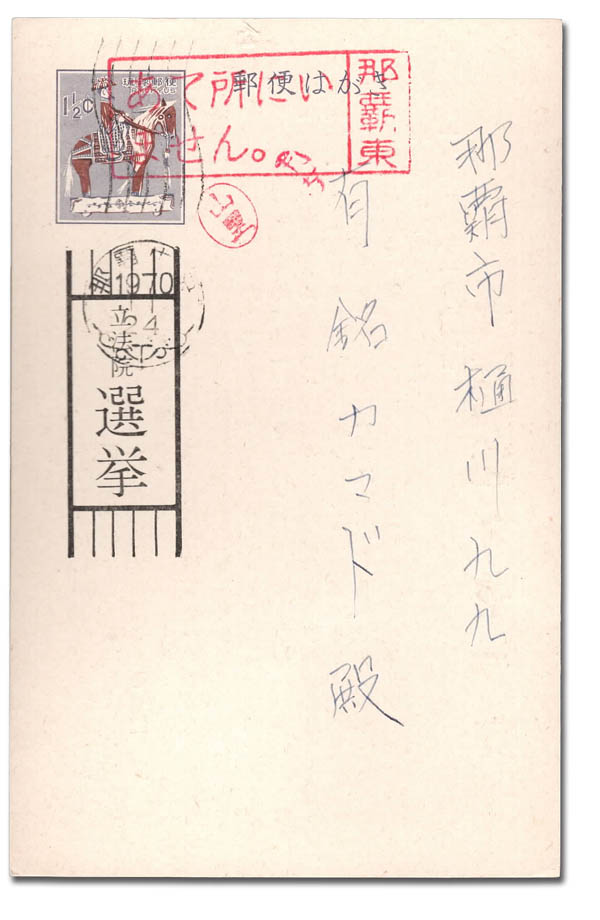 郵便はがき
琉球郵便
RYUKYUS
1½¢
那覇東
あて所にい
ません。
那覇市樋川九九
有銘カマド殿
那覇
1970
4
立法院
選挙